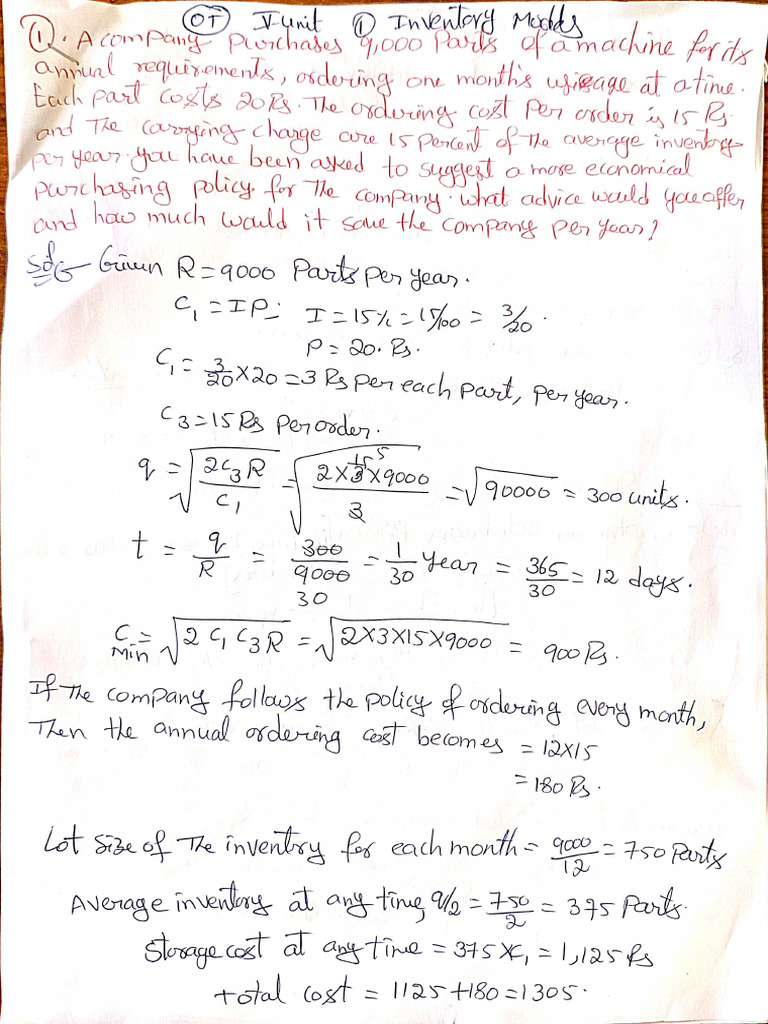 OT V unit ① Inventory Models
①. A company purchases 9,000 Parts of a machine for its
annual requirements, ordering one month's usage at a time.
Each part costs 20 Rs. The ordering cost per order is 15 Rs
and The carrying charge are 15 percent of the average inventory
per year. you have been asked to suggest a more economical
purchasing policy for The company. what advice would you offer
and how much would it save the company per year?
Sol Given R = 9000 Parts per year.
C₁ = IP; I = 15% = 15/100 = 3/20.
P = 20. Rs.
C₁ = 3/20 × 20 = 3 Rs per each part, per year.
C₃ = 15 Rs per order.
q = √(2C₃R / C₁) = √(2 × 15 × 9000 / 3) = √90000 = 300 units.
t = q/R = 300/9000 = 1/30 year = 365/30 = 12 days.
C Min = √2 C₁ C₃ R = √2×3×15×9000 = 900 Rs.
If The company follows the policy of ordering every month,
Then the annual ordering cost becomes = 12×15
= 180 Rs.
Lot size of The inventry for each month = 9000/12 = 750 Parts
Average inventory at any time, q/2 = 750/2 = 375 Parts.
Storage cost at any time = 375 × C₁ = 1,125 Rs
total cost = 1125 + 180 = 1305.